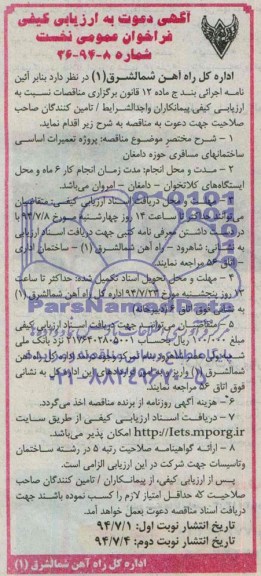 آگهی دعوت به ارزیابی کیفی
فراخوان عمومی نخست
شماره ۸-۹۴-۳۶
اداره کل راه آهن شمالشرق(۱) در نظر دارد بنابر آئین
نامه اجرائی بند ج ماده ۱۲ قانون برگزاری مناقصات نسبت به
ارزیابی کیفی پیمانکاران واجدالشرایط / تامین کنندگان صاحب
صلاحیت جهت دعوت به مناقصه به شرح زیر اقدام نماید.
۱ - شرح مختصر موضوع مناقصه: پروژه تعمیرات اساسی
ساختمانهای مسافری حوزه دامغان
۲ - مدت و محل انجام: مدت زمان انجام کار ۶ ماه و محل
ایستگاه‌های کلاتخوان - دامغان - امروان می‌باشد.
دریافت اسناد ارزیابی کیفی: متقاضیان
می‌توانند حداکثر تا ساعت ۱۴ روز چهارشنبه مورخ ۹۴/۷/۸ با
در دست داشتن معرفی نامه کتبی جهت دریافت اسناد ارزیابی
به نشانی: شاهرود - راه آهن شمالشرق (۱) - ساختمان اداری
- اتاق ۵۶ مراجعه نمایند.
۴ - مهلت و محل تحویل اسناد تکمیل شده: حداکثر تا ساعت
۱۲ روز پنجشنبه مورخ ۹۴/۷/۲۳ اداره کل راه آهن شمالشرق(۱)
۵ - متقاضیان می‌توانند جهت دریافت اسناد ارزیابی کیفی
مبلغ ۱۰۰/۰۰۰ ریال بحساب نزد بانک ملی
شمالشرق (۱) واریز و به امور قراردادهای این اداره کل به نشانی
فوق اتاق ۵۶ مراجعه نمایند.
۶- هزینه آگهی روزنامه از برنده مناقصه اخذ می‌گردد.
۷ - دریافت اسناد ارزیابی کیفی از طریق سایت
http://Iets.mporg.ir امکان پذیر می‌باشد.
۸ - ارائه گواهینامه صلاحیت رتبه ۵ در رشته ساختمان
وتاسیسات جهت شرکت در این ارزیابی الزامی است.
پس از ارزیابی کیفی، از پیمانکاران / تامین کنندگان صاحب
صلاحیت که حداقل امتیاز لازم را کسب نموده باشند جهت
دریافت اسناد مناقصه دعوت بعمل خواهد آمد.
تاریخ انتشار نوبت اول: ۹۴/۷/۱
تاریخ انتشار نوبت دوم: ۹۴/۷/۴
اداره کل راه آهن شمالشرق (۱)
ParsNamadData
پایگاه اطلاع رسانی پارس نماد داده ها
۰۲۱-۸۸۳۴۹۶۷۰-۵